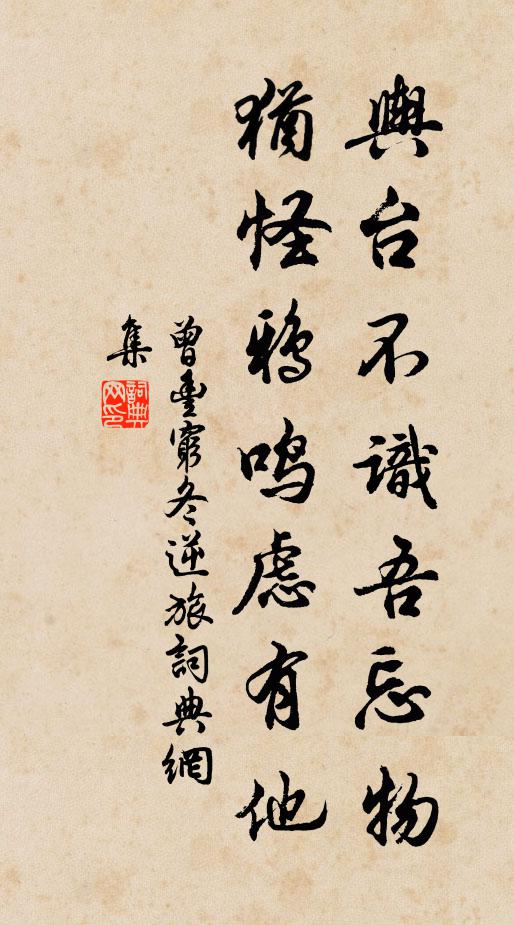 輿台不識吾忘物
猶怪鴉鳴慮有他
曾豐窮冬逆旅詞典網
集
詞典
网印